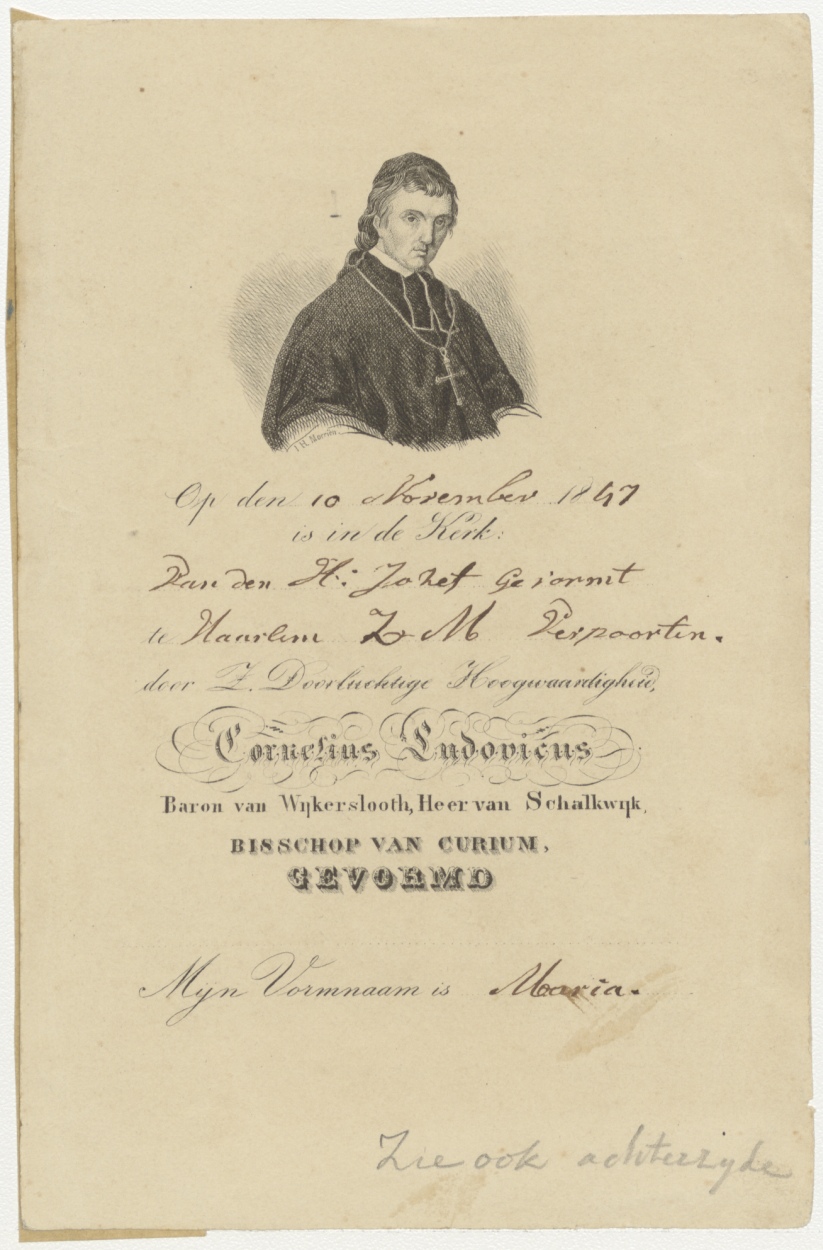 I. H. Morriën
Op den 10 November 1847
is in de Kerk:
Van den H: Jozef Gevormt
te Haarlem Z M Verpoorten.
door Z. Doorluchtige Hoogwaardigheid,
Cornelius Ludovicus
Baron van Wijkerslooth, Heer van Schalkwijk,
BISSCHOP VAN CURIUM,
GEVORMD
Mijn Vormnaam is Maria.
Zie ook achterzyde